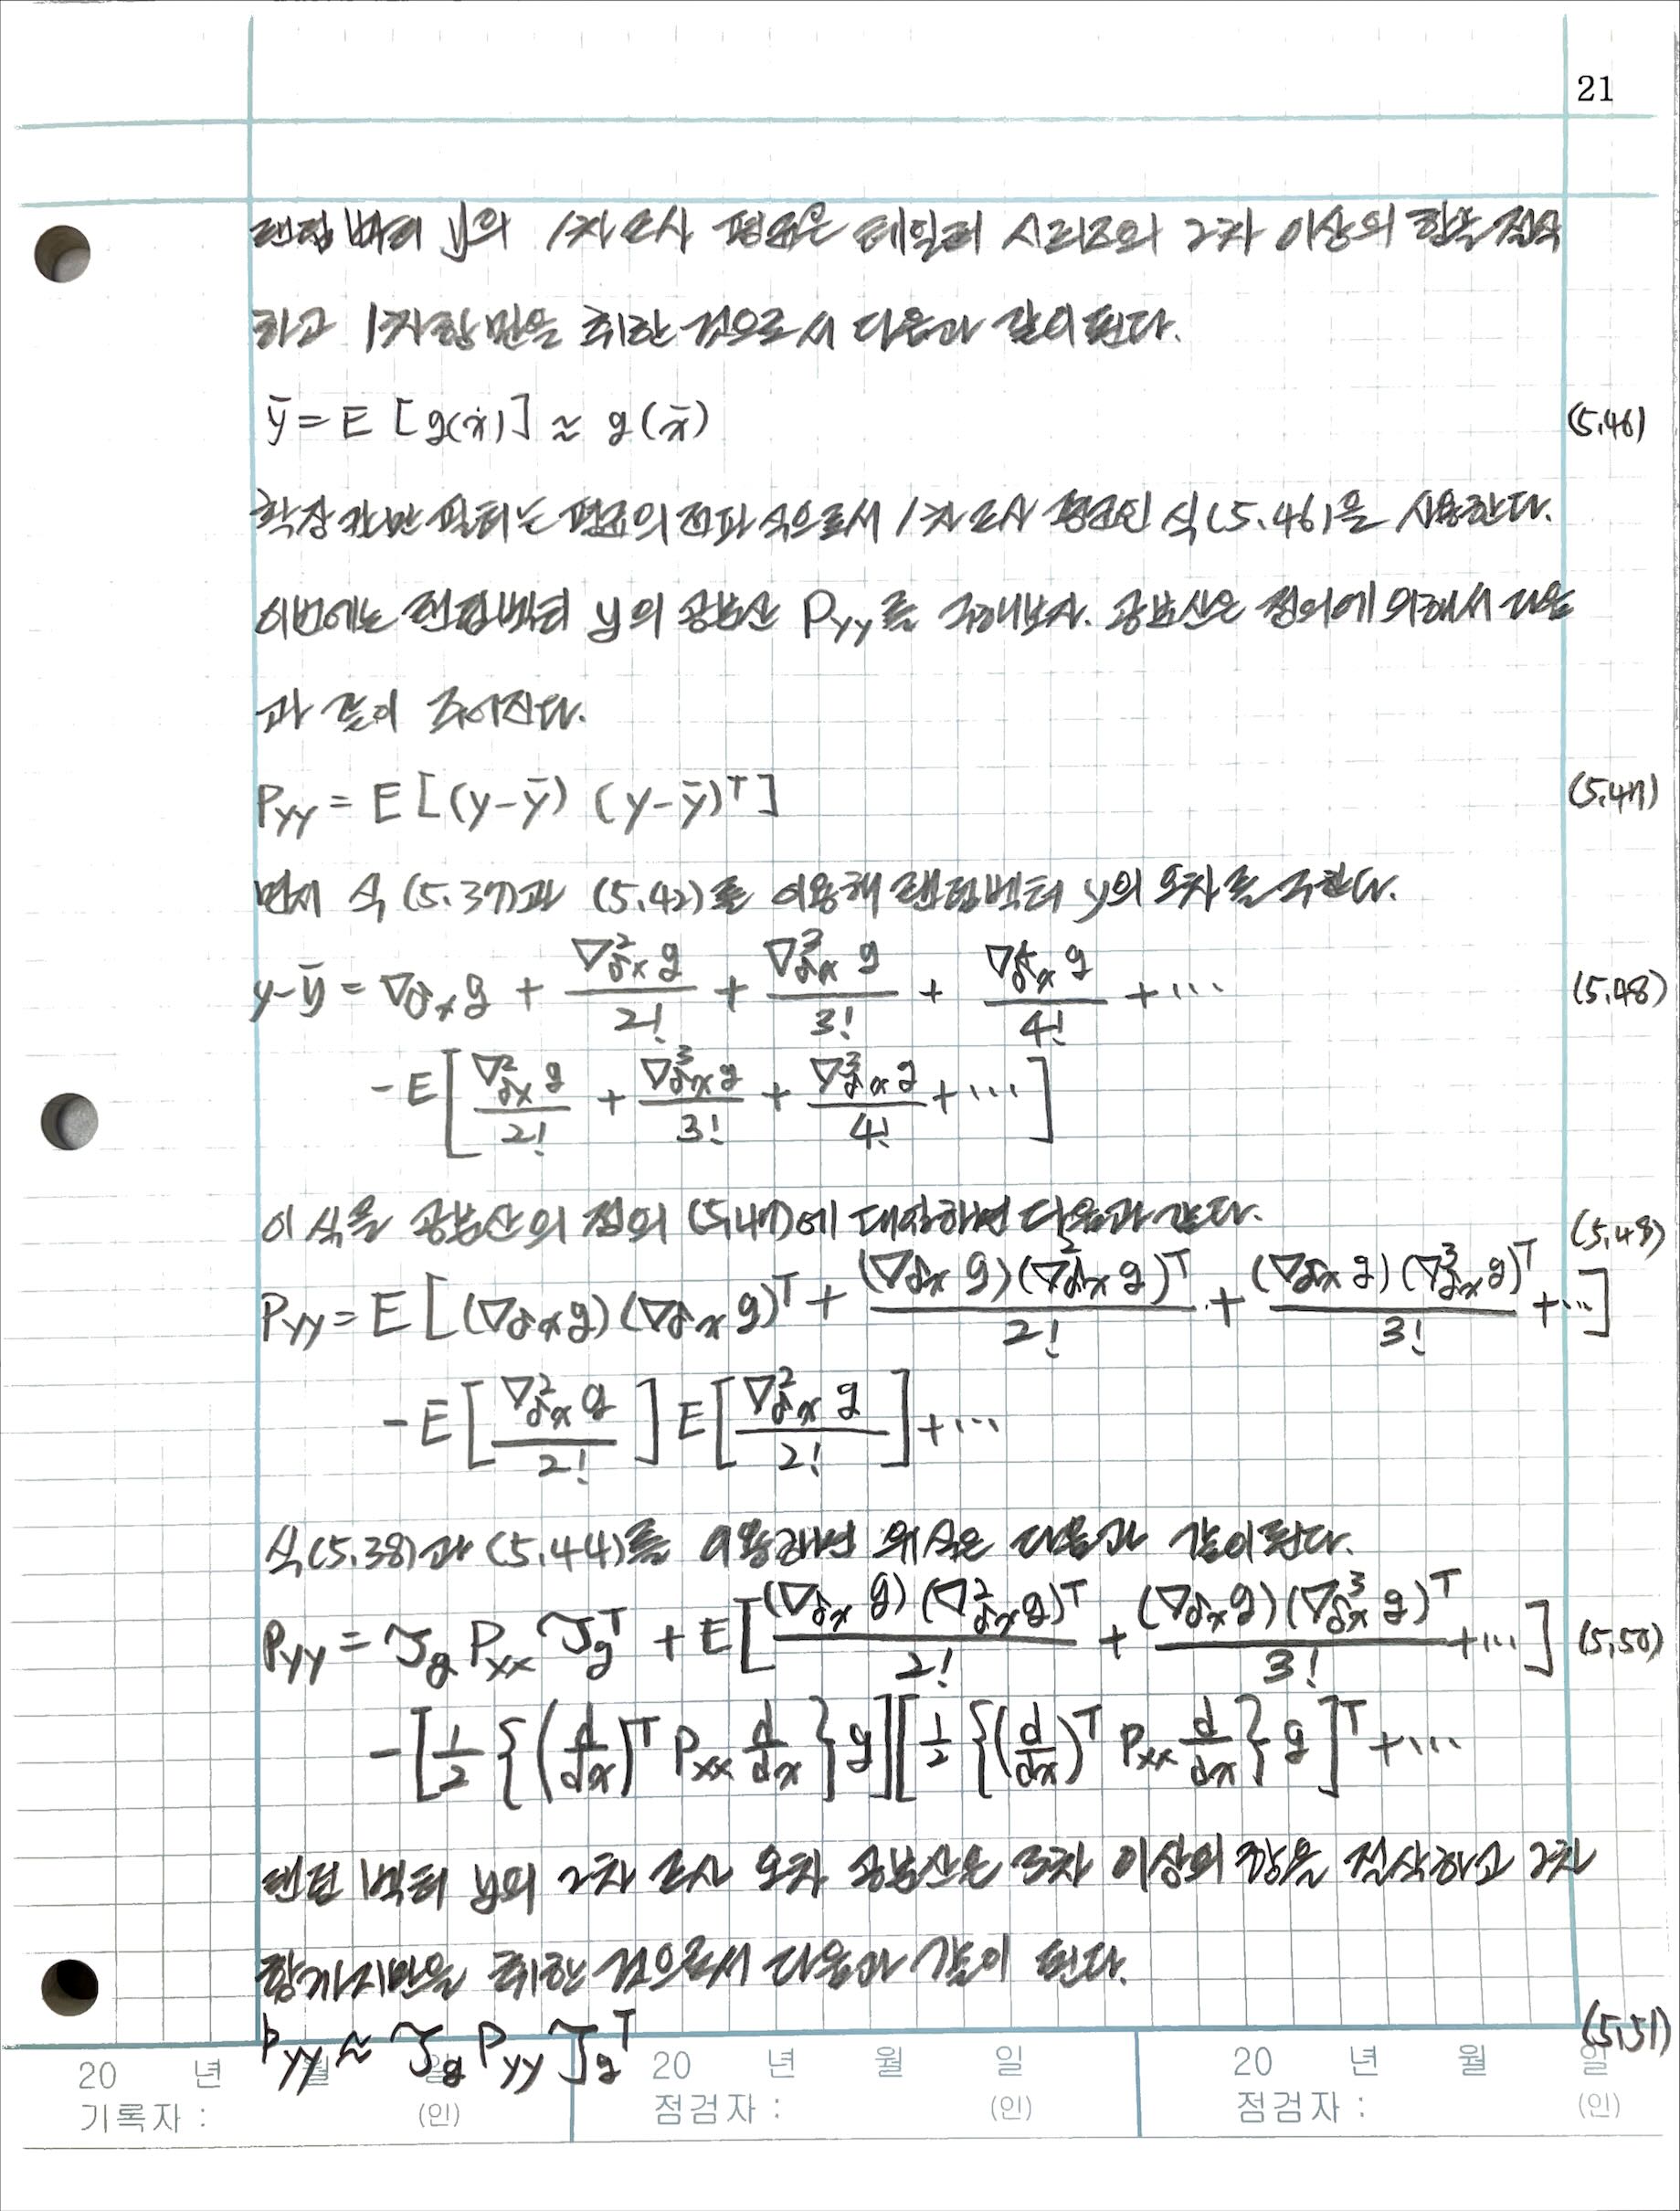 21
랜덤 벡터 y의 1차 근사 평균은 테일러 시리즈의 2차 이상의 항을 절삭
하고 1차항 만을 취한 것으로서 다음과 같이 된다.
ȳ = E [g(x)] ≈ g(x̄) (5.46)
확장 칼만 필터는 평균의 전파 식으로서 1차 근사 평균인 식 (5.46)을 사용한다.
이번에는 랜덤벡터 y의 공분산 Pyy를 구해보자. 공분산은 정의에 의해서 다음
과 같이 주어진다.
Pyy = E [(y-ȳ) (y-ȳ)ᵀ] (5.47)
먼저 식 (5.37)과 (5.42)를 이용해 랜덤벡터 y의 오차를 구한다.
y-ȳ = ∇δx g + ∇²δx g / 2! + ∇³δx g / 3! + ∇⁴δx g / 4! + ··· (5.48)
- E [ ∇²δx g / 2! + ∇³δx g / 3! + ∇³δx g / 4! + ··· ]
이 식을 공분산의 정의 (5.47)에 대입하면 다음과 같다.
Pyy = E [ (∇δx g)(∇δx g)ᵀ + (∇δx g)(∇²δx g)ᵀ / 2! + (∇δx g)(∇³δx g)ᵀ / 3! + ··· ] (5.49)
- E [ ∇²δx g / 2! ] E [ ∇²δx g / 2! ] + ···
식 (5.38)과 (5.44)를 이용하면 위 식은 다음과 같이 된다.
Pyy = Jg Pxx Jgᵀ + E [ (∇δx g)(∇²δx g)ᵀ / 2! + (∇δx g)(∇³δx g)ᵀ / 3! + ··· ] (5.50)
- [ 1/2 { (d/dx)ᵀ Pxx d/dx } g ] [ 1/2 { (d/dx)ᵀ Pxx d/dx } g ]ᵀ + ···
랜덤 벡터 y의 2차 근사 오차 공분산은 3차 이상의 항을 절삭하고 2차
항까지만을 취한 것으로서 다음과 같이 된다.
Pyy ≈ Jg Pyy Jgᵀ (5.51)
20 년 월 일 20 년 월 일 20 년 월 일
기록자 : (인) 점검자 : (인) 점검자 : (인)